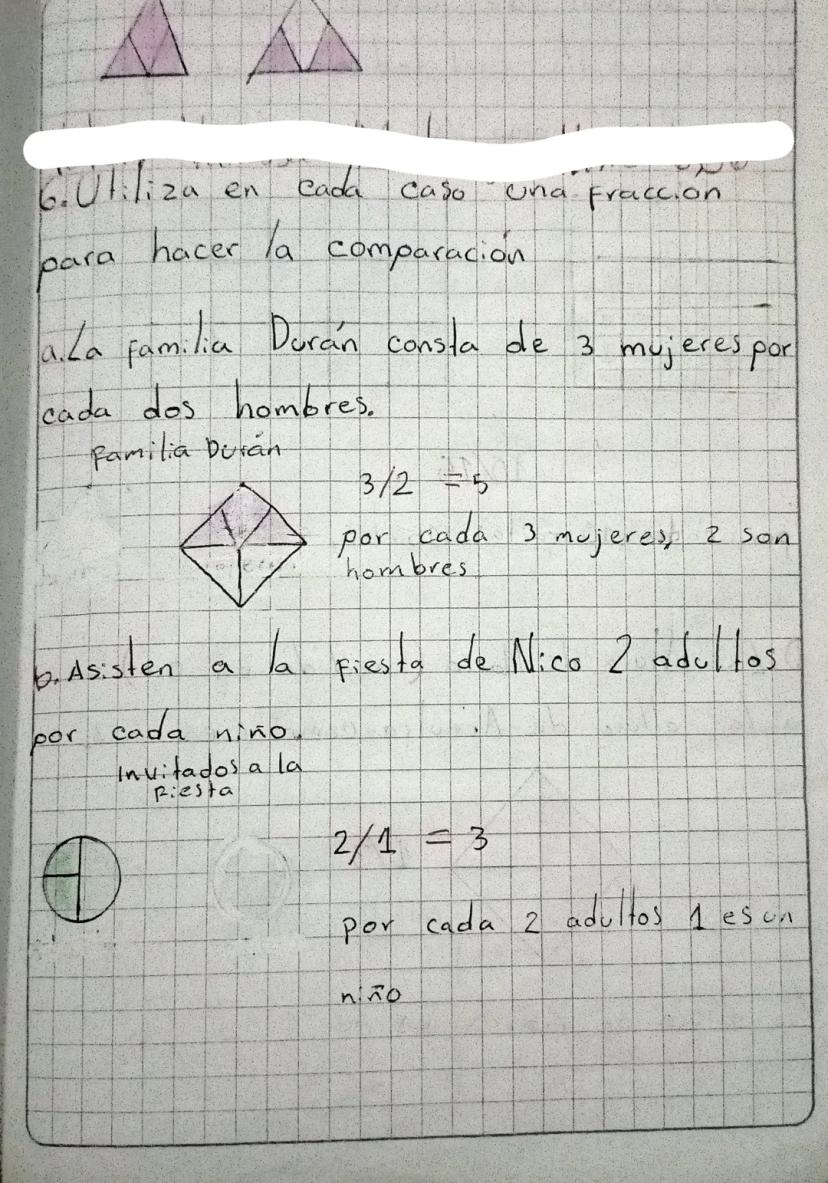 6. Utiliza en cada caso una fraccion
para hacer la comparación
a. La familia Durán consta de 3 mujeres por
cada dos hombres.
Familia Durán
3/2 = 5
por cada 3 mujeres, 2 son
hombres
b. Asisten a la fiesta de Nico 2 adultos
por cada niño.
Invitados a la
fiesta
2/1 = 3
por cada 2 adultos 1 es un
niño